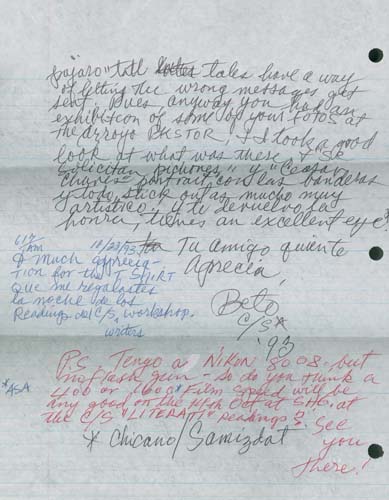 pajaro" tall tales have a way
of letting the wrong messages get
sent. Pues, anyway you had an
exhibition of some of your fotos at
the arroyo PASTOR, & I took a good
look at what was there & "Se
solicitan pichones" y "Ceasar
Chavez" portrait, con las banderas
y todo, stick out as mucho muy
artistico, y te devuelvo la
honra, tienes an excellent eye.
Tu amigo quiente
Aprecia,
Beto
C/S
'93
10/23/93
& Much apprecia-
tion for the T SHIRT
que me regalastes
la noche de los
Readings del C/S workshop.
writers
P.S. Tengo a NIKON 8008. but
no flash gun - so do you think a
400 or 1600* Film speed will be
any good on the Oct at SHG. at
the C/S "LITERATI" Readings? See
you
there!
*ASA
* Chicano/Samizdat